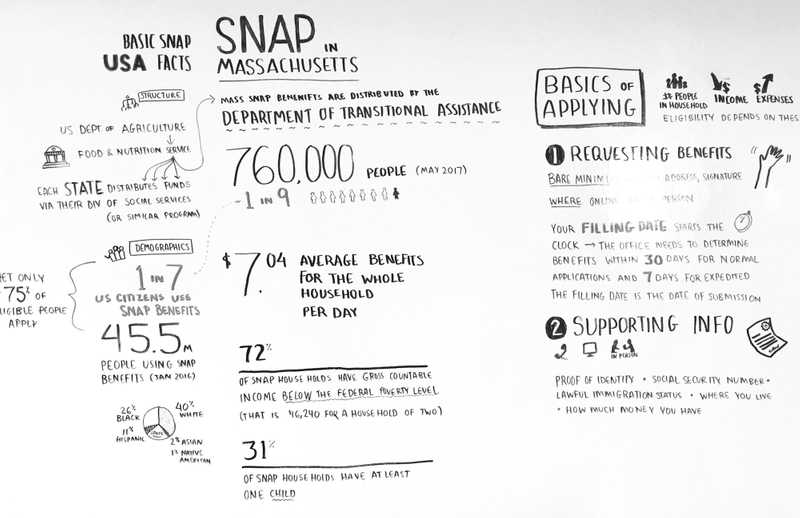 BASIC SNAP
USA FACTS
STRUCTURE
US DEPT. OF AGRICULTURE
FOOD & NUTRITION SERVICE
EACH STATE DISTRIBUTES FUNDS
VIA THEIR DIV OF SOCIAL SERVICES
(OR SIMILAR PROGRAM)
DEMOGRAPHICS
1 IN 7
US CITIZENS USE
SNAP BENEFITS
ONLY
75% OF
PEOPLE
APPLY
45.5M
PEOPLE USING SNAP
BENEFITS (JAN 2016)
26%
BLACK
40%
WHITE
11%
HISPANIC
2% ASIAN
1% NATIVE
AMERICAN
SNAP IN
MASSACHUSETTS
MASS SNAP BENENIFTS ARE DISTRIBUTED BY THE
DEPARTMENT OF TRANSITIONAL ASSISTANCE
760,000 PEOPLE (MAY 2017)
~1 IN 9
$7.04 AVERAGE BENEFITS
FOR THE WHOLE
HOUSEHOLD
PER DAY
72%
OF SNAP HOUSE HOLDS HAVE GROSS COUNTABLE
INCOME BELOW THE FEDERAL POVERTY LEVEL
(THAT IS 16,240 FOR A HOUSEHOLD OF TWO)
31%
OF SNAP HOUSE HOLDS HAVE AT LEAST
ONE CHILD
BASICS OF
APPLYING
# PEOPLE
IN HOUSEHOLD
INCOME
EXPENSES
ELIGIBILITY DEPENDS ON
1 REQUESTING BENEFITS
BARE ADDRESS, SIGNATURE
WHERE ONLINE PERSON
YOUR FILLING DATE STARTS THE
CLOCK → THE OFFICE NEEDS TO DETERMINE
BENEFITS WITHIN 30 DAYS FOR NORMAL
APPLICATIONS AND 7 DAYS FOR EXPEDITED
THE FILLING DATE IS THE DATE OF SUBMISSION
2 SUPPORTING INFO
IN PERSON
PROOF OF IDENTIFY • SOCIAL SECURITY NUMBER •
LAWFUL IMMIGRATION STATUS • WHERE YOU LIVE
• HOW MUCH MONEY YOU HAVE